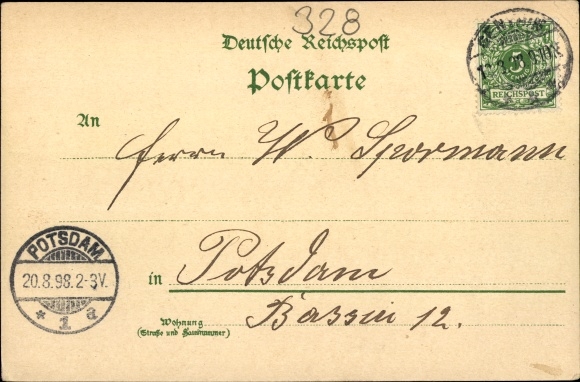 328
Deutsche Reichspost
Postkarte
REICHSPOST
An
Herrn W. Spormann
POTSDAM
20.8.98.2-3V.
* 1 a
in Potsdam
Wohnung
(Straße und Hausnummer)
Bassin 12.